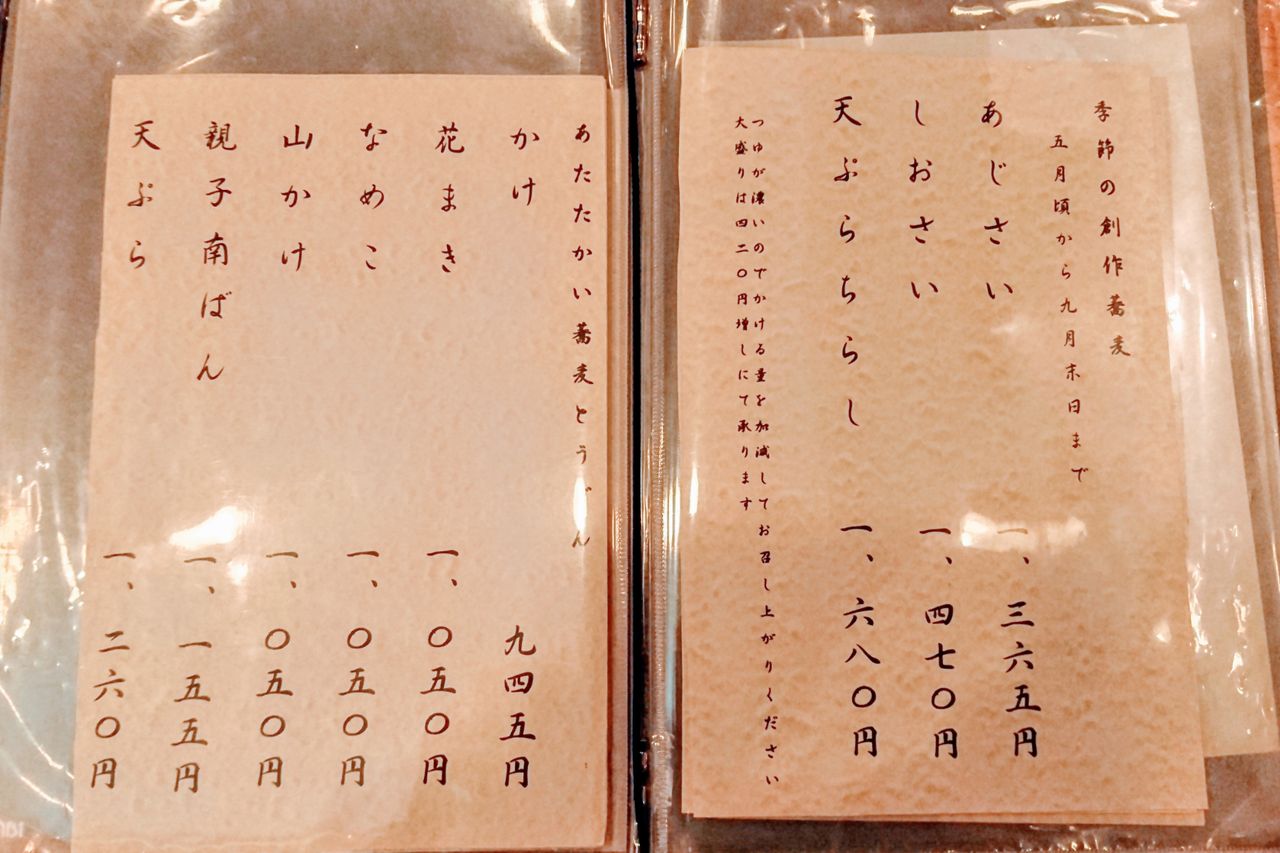 季節の創作蕎麦
五月頃から九月末日まで
あじさい 一、三六五円
しおさい 一、四七〇円
天ぷらちらし 一、六八〇円
つゆが濃いのでかける量を加減してお召し上がりください
大盛りは四二〇円増しにて承ります
あたたかい蕎麦とうどん
かけ 九四五円
花まき 一、〇五〇円
なめこ 一、〇五〇円
山かけ 一、〇五〇円
親子南ばん 一、一五五円
天ぷら 一、二六〇円